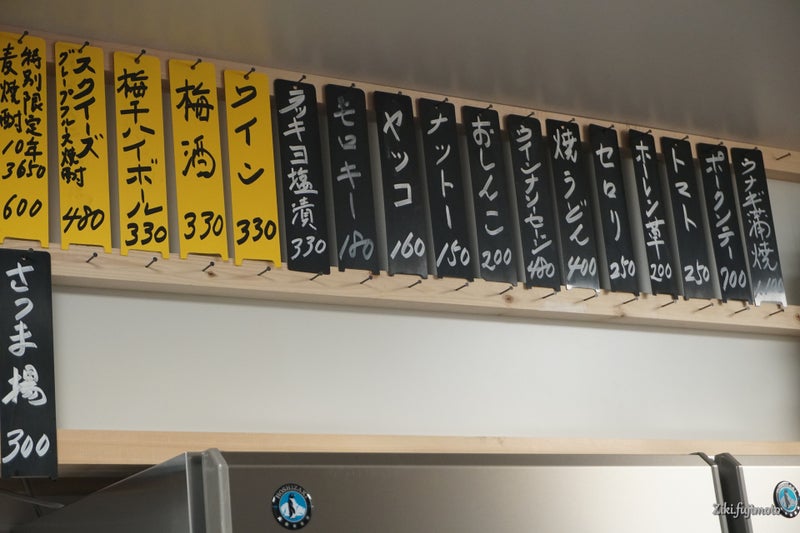 特別限定年
麦焼酎
10
3650
600
スクイーズ
グレープフルーツ焼酎
480
梅チハイボール
330
梅酒
330
ワイン
330
ラッキョ塩漬
330
モロキー
180
ヤッコ
160
ナットー
150
おしんこ
200
ウインナンセーン
480
焼うどん
400
セロリ
250
ホーレン草
200
トマト
250
ポークソテー
700
ウナギ蒲焼
さつま揚
300
HOSHIZAKI
Ziki.fujimoto